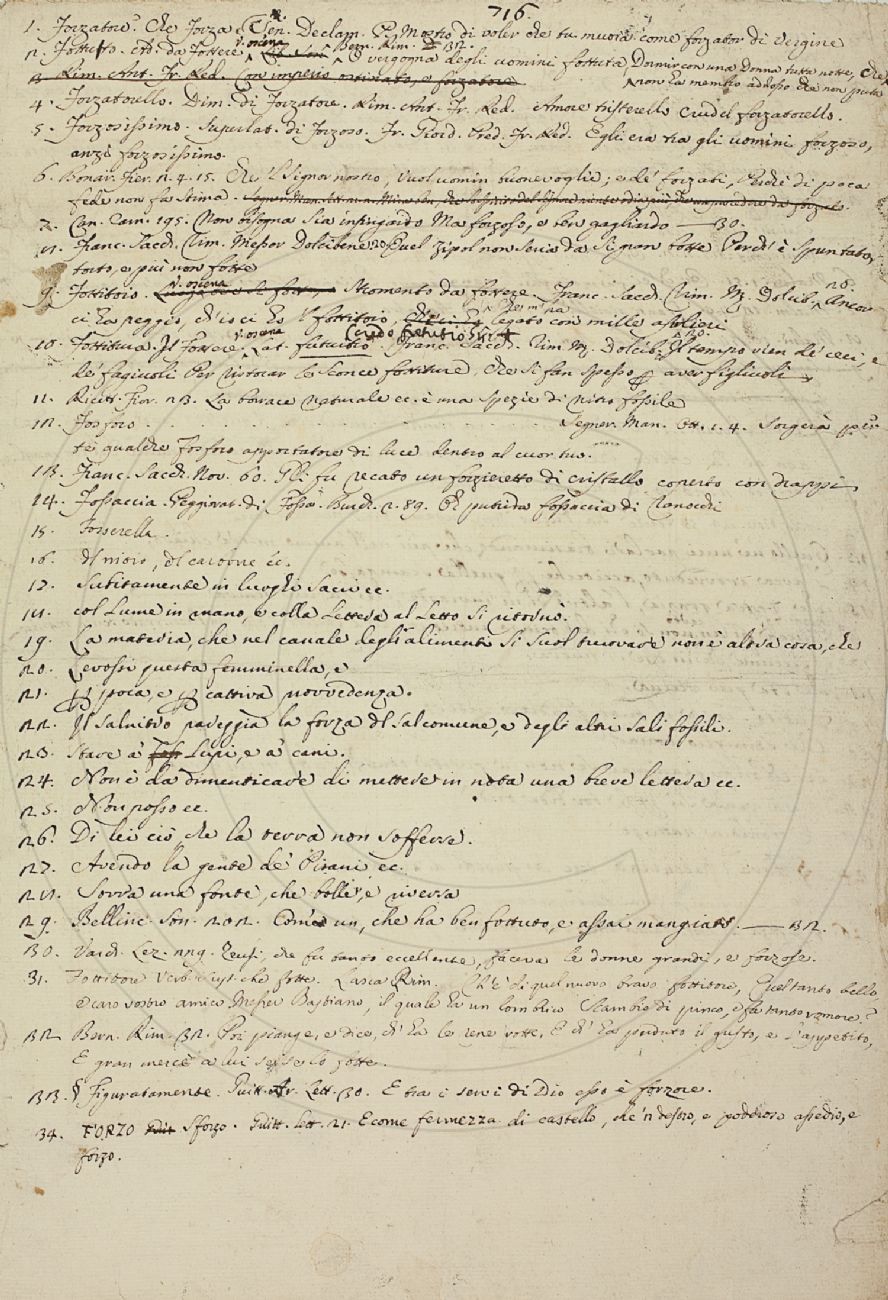 716.
1. Forzatore. Che forza. Sen. Declam. P. Mostrò di voler che tu muoia come forzator di Vergine
2. Fottuto. da Fottere V. oscena Bern. Rim. 32. O vergogna degli uomini fottuta, Dormir con una Donna tutta notte, Che non ha membro addosso che non puta
3. Rim. Ant. Fr. Red. Con imperio ostinato, e forzatore
4. Forzatorello. Dim. di Forzatore. Rim. Ant. Fr. Red. Amore tristerello crudel forzatorello.
5. Forzosissimo. Superlat. di Forzoso. Fr. Giord. Pred. Fr. Red. Egli era tra gli uomini forzoso,
anzi forzosissimo.
6. Bonar. Fier. 2. 4. 15. Che 'l Signor nostro, vuol uomin buonevoglie; e de' forzati, Perchè di poca
fede non fa stima.
7. Can. Carn. 195. Non bisogna sia infingardo Ma forzoso, e ben gagliardo — 30.
8. Franc. Sacch. Rim. Messer Dolcibene 20 Quel zipol non seria da signor botte Perch' è spuntato,
torto, e più non fotte
9. Fottitoio. V. oscena Stromento da fottere. Franc. Sacch. Rim. M. Dolcib. 20. Ancor
ci ha peggio, ch' io ci ho 'l fottitoio, legato con mille
10. Fottitura. Il Fottere V. oscena Lat. fututio Franc. Sacch. Rim. M. Dolcib. Il tempo vien de' ceci, e
de' fagiuoli Per ristorar le sconce fottiture, Che si fan spesso p aver figliuoli,
11. Ricett. Fior. 23. La borrace naturale ec. è una spezie di nitro fossile
12. Fosforo . . . . . . . . . . Segner. Man. Ott. 1. 4. Sorgerà per
te qualche fosforo apportatore di luce dentro al cuor tuo.
13. Franc. Sacch. Nov. 60. Gli fu recato un forzieretto di cristallo coperto con drappi,
14. Fossaccia. Peggiorat. di Fossa. Burch. 2. 89. Ch putrida fossaccia di Ranocchi
15. Forserella.
16. dl nitro, dl carbone ec.
17. Subitamente in luoghi sacri ec.
18. col lume in mano, e colla lettera al letto si ritornò.
19. La materia, che nel canale degli alimenti si suol trovare non è altra cosa, che
20. Levossi questa femminella, e
21. p poca, e p cattiva provvedenza.
22. Il salnitro pareggia la forza dl sal comune, e degli altri sali fossili.
23. stare a' Lupi, e a' cani.
24. Non è da dimenticare di mettere in nota una breve lettera ec.
25. Non posso ec.
26. Di lei ciò, che la terra non sofferse.
27. Avendo la gente de' Pisani ec.
28. Sovra una fonte, che bolle, e riversa
29. Bellinc. Son. 202. Com'è un, che ha ben fottuto, e assai mangiato. — 32.
30. Varch. Lez. 229. Zeusi, che fu tanto eccellente, faceva le donne grandi, e forzose.
31. Fottitore Verb. che fotte. Lasca Rim. Ch'è di quel nuovo bravo fottitore, Quel tanto bello,
e caro vostro amico Messer Bastiano, il quale ha un lombrico Scambio di pinco, e fa tanto romore?
32 Bern. Rim. 32. Poi piange, e dice, ch' ha le rene rotte, E ch' ha perduto il gusto, e l'appetito,
E gran mercè a lui se se lo fotte.
33. § Figuratamente. Guitt. Fr. Lett. 30. E tra i servi di Dio esso è forzore.
34. FORZO Sforzo. Guitt. Lett. 21. E come fermezza di castello, ch' è 'n defeso, e poderoso assedio, e
forzo.